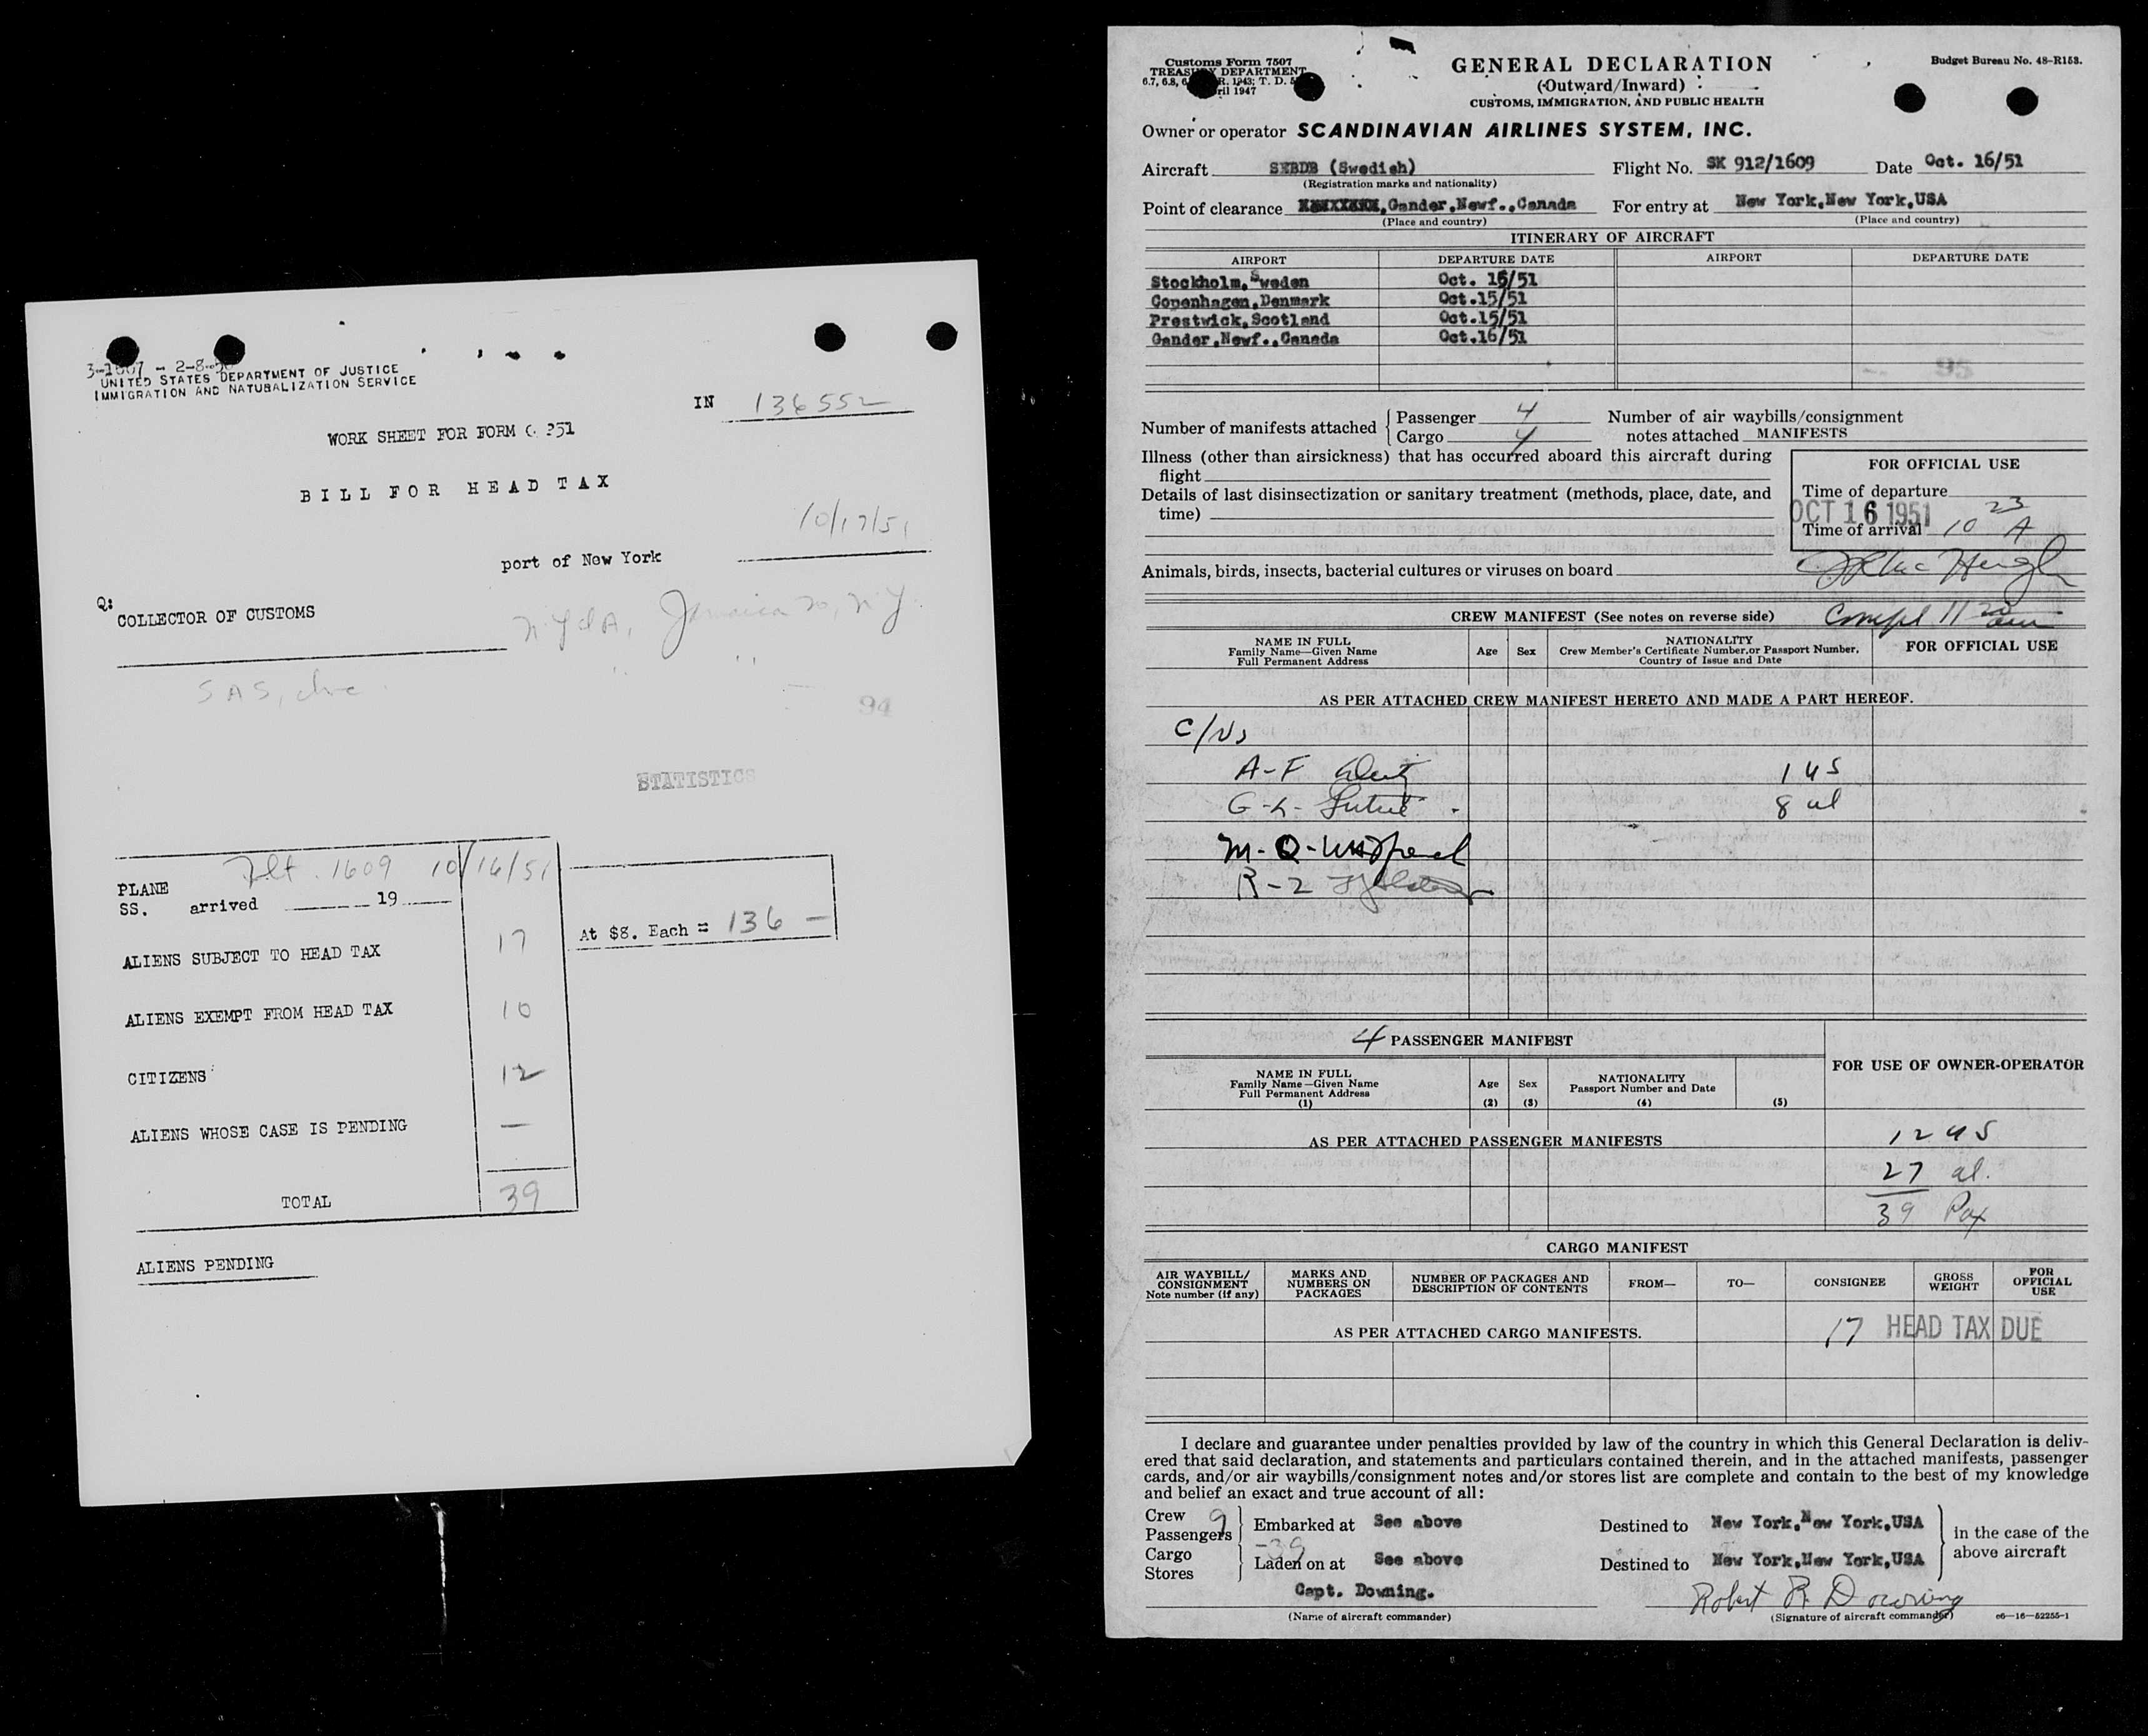 3-1507 - 2-8-50
UNITED STATES DEPARTMENT OF JUSTICE
IMMIGRATION AND NATURALIZATION SERVICE
IN 136552
WORK SHEET FOR FORM 351
BILL FOR HEAD TAX
10/17/51
port of New York
Q:
COLLECTOR OF CUSTOMS
Jamaica 20, N.Y.
SAS, Inc
94
STATISTICS
Flt. 1609 10/16/51
PLANE
SS. arrived 19
ALIENS SUBJECT TO HEAD TAX 17
At $8. Each = 136 —
ALIENS EXEMPT FROM HEAD TAX 10
CITIZENS 12
ALIENS WHOSE CASE IS PENDING —
TOTAL 39
ALIENS PENDING
Customs Form 7507
TREASURY DEPARTMENT
6.7, 6.8, R. 1943; T. D.
April 1947
GENERAL DECLARATION
(Outward/Inward)
CUSTOMS, IMMIGRATION, AND PUBLIC HEALTH
Budget Bureau No. 48-R153.
Owner or operator SCANDINAVIAN AIRLINES SYSTEM, INC.
Aircraft SEBDB (Swedish) Flight No. SK 912/1609 Date Oct. 16/51
(Registration marks and nationality)
Point of clearance Gander,Newf.,Canada For entry at New York,New York,USA
(Place and country) (Place and country)
ITINERARY OF AIRCRAFT
AIRPORT DEPARTURE DATE AIRPORT DEPARTURE DATE
Stockholm,Sweden Oct. 15/51
Copenhagen,Denmark Oct.15/51
Prestwick,Scotland Oct.15/51
Gander,Newf.,Canada Oct.16/51
95
Number of manifests attached { Passenger 4
Cargo 4
Number of air waybills/consignment
notes attached MANIFESTS
Illness (other than airsickness) that has occurred aboard this aircraft during
flight
Details of last disinsectization or sanitary treatment (methods, place, date, and
time)
FOR OFFICIAL USE
Time of departure
OCT 16 1951
Time of arrival 10 23 A
Animals, birds, insects, bacterial cultures or viruses on board
CREW MANIFEST (See notes on reverse side) Compl 11 20 am
NAME IN FULL
Family Name—Given Name
Full Permanent Address
Age Sex
NATIONALITY
Crew Member's Certificate Number,or Passport Number,
Country of Issue and Date
FOR OFFICIAL USE
AS PER ATTACHED CREW MANIFEST HERETO AND MADE A PART HEREOF.
A-F 1 US
G-L 8 al
M-Q
R-Z
4 PASSENGER MANIFEST
NAME IN FULL
Family Name—Given Name
Full Permanent Address
(1)
Age
(2)
Sex
(3)
NATIONALITY
Passport Number and Date
(4)
(5)
FOR USE OF OWNER-OPERATOR
AS PER ATTACHED PASSENGER MANIFESTS
12 US
27 al.
39 Pax
CARGO MANIFEST
AIR WAYBILL/
CONSIGNMENT
Note number (if any)
MARKS AND
NUMBERS ON
PACKAGES
NUMBER OF PACKAGES AND
DESCRIPTION OF CONTENTS
FROM—
TO—
CONSIGNEE
GROSS
WEIGHT
FOR
OFFICIAL
USE
AS PER ATTACHED CARGO MANIFESTS.
17 HEAD TAX DUE
I declare and guarantee under penalties provided by law of the country in which this General Declaration is deliv-
ered that said declaration, and statements and particulars contained therein, and in the attached manifests, passenger
cards, and/or air waybills/consignment notes and/or stores list are complete and contain to the best of my knowledge
and belief an exact and true account of all:
Crew 9
Passengers
Embarked at See above Destined to New York,New York,USA
39
Cargo
Stores
Laden on at See above Destined to New York,New York,USA
in the case of the
above aircraft
Capt. Downing.
(Name of aircraft commander)
Robert R. Downing
(Signature of aircraft commander)
c6—16—52255-1